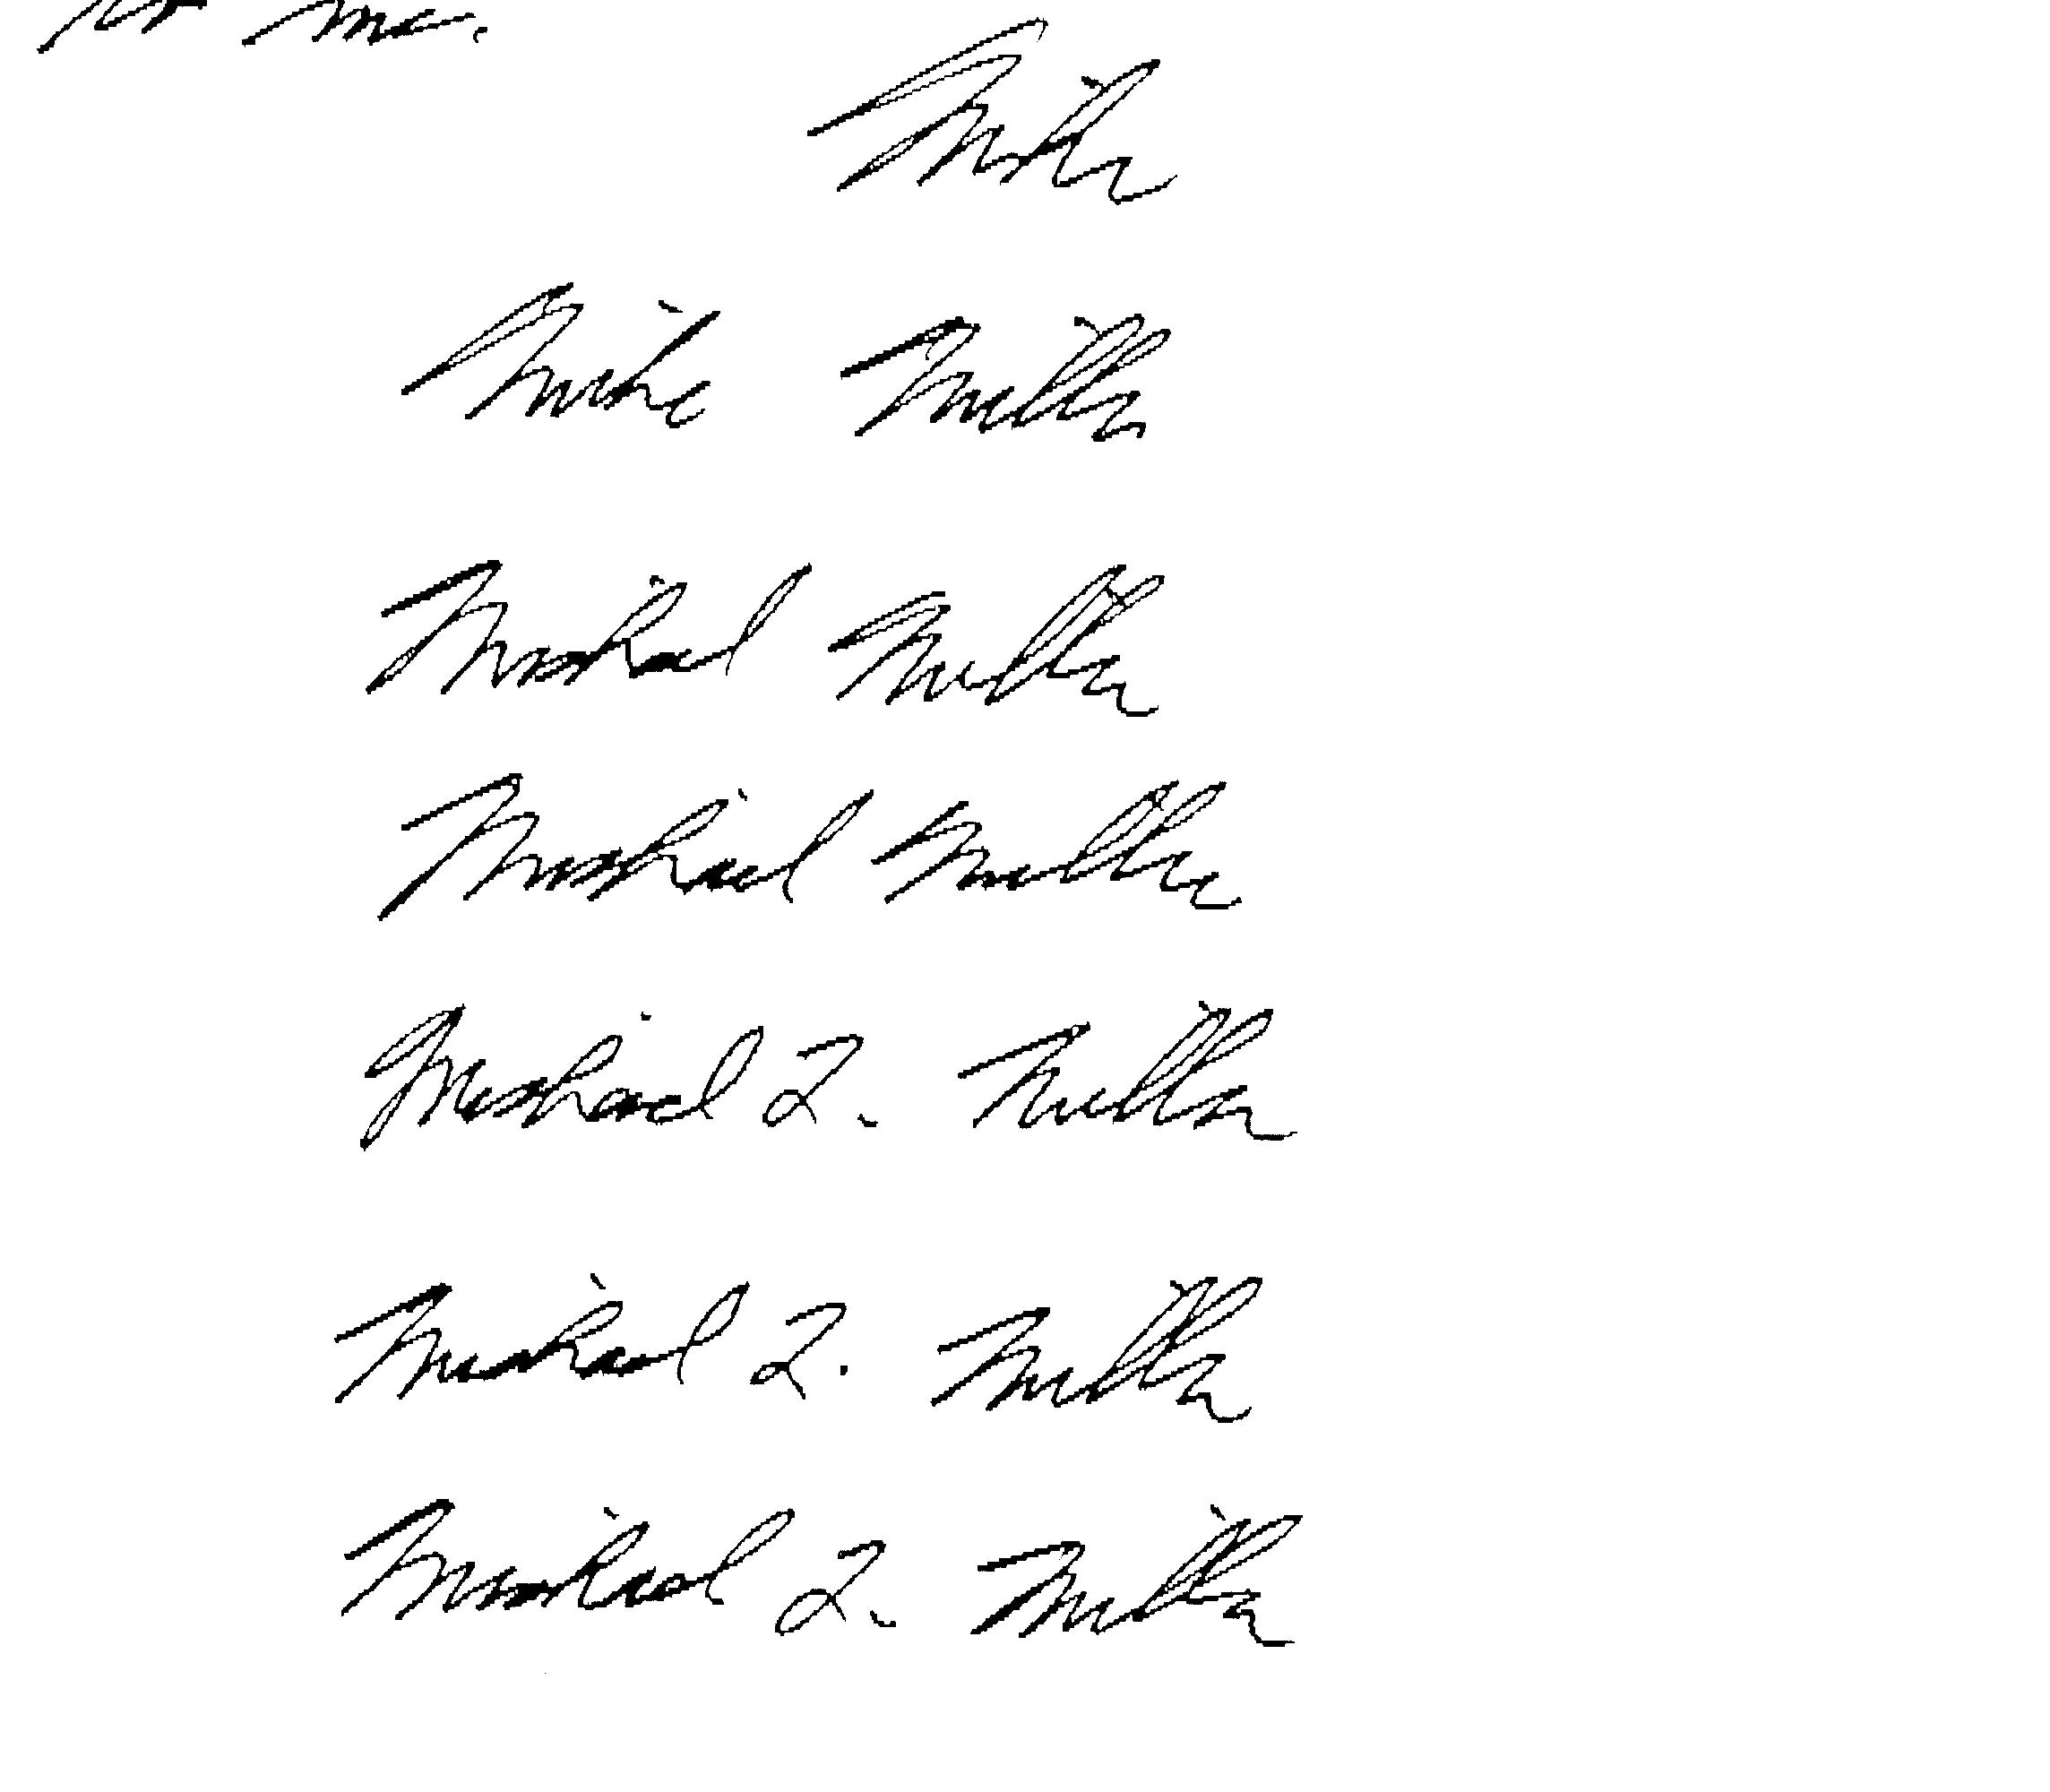 to me.
Mike
Mike Miller
Michael Miller
Michael Miller
Michael L. Miller
Michael L. Miller
Michael L. Miller